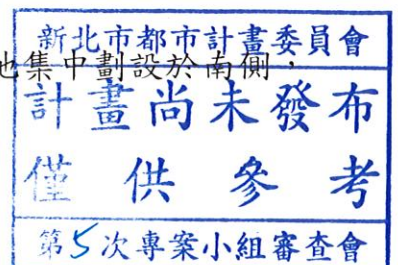 新北市都市計畫委員會
地集中劃設於南側，
計畫尚未發布
僅供參考
第5次專案小組審查會